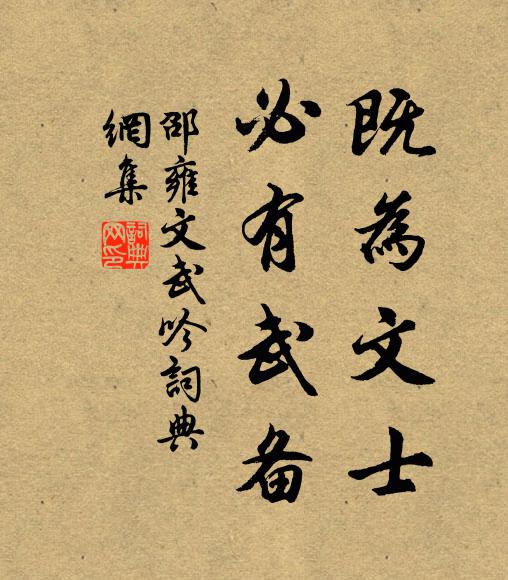 既為文士
必有武备
邵雍文武吟詞典
網集
詞典
网印